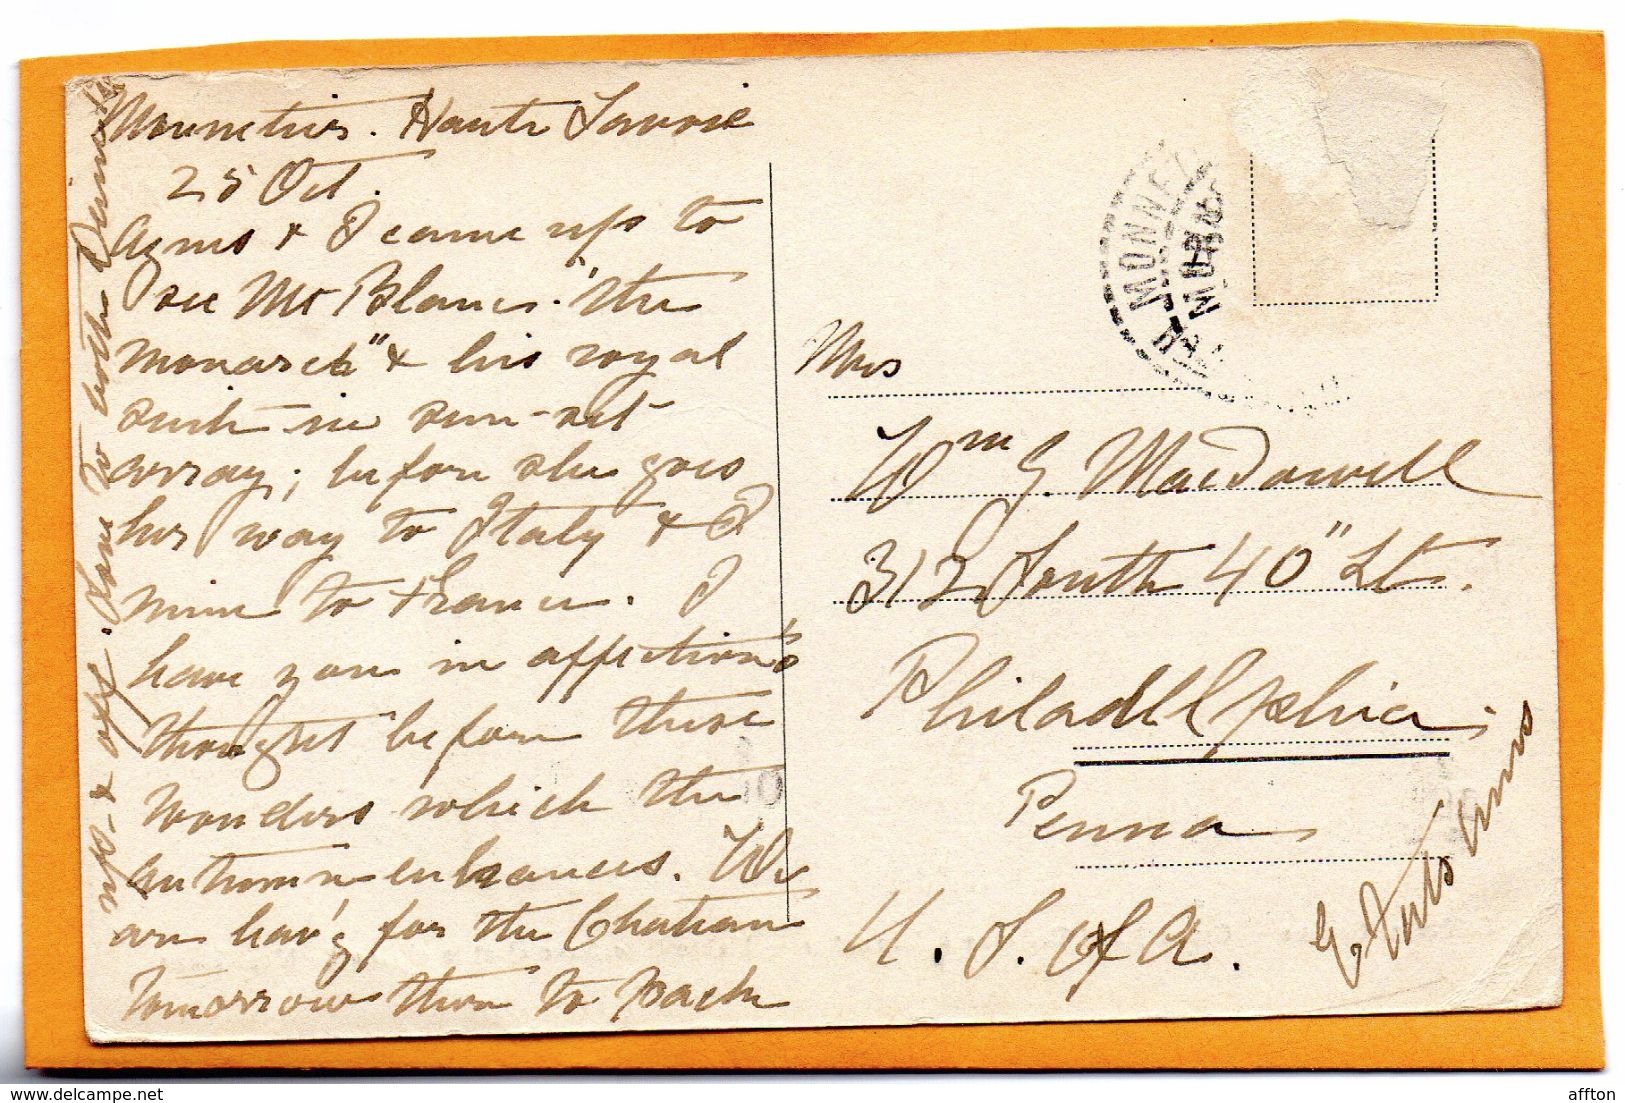 Monnetier. Haute Savoie
25 Oct.
Agnes & I came up to
see Mt Blanc. "the
Monarch" & his royal
suite in sun-set
array; before she goes
her way to Italy & I
mine to France. I
have you in affection's
thought before these
wonders which the
autumn enhances. We
are hav'g for the Chateau
tomorrow then to pack
up - & off. Love to both
Mrs
Wm G. MacDowell
312 South 40" St.
Philadelphia
Penna
U. S. of A.
MONNE
affton